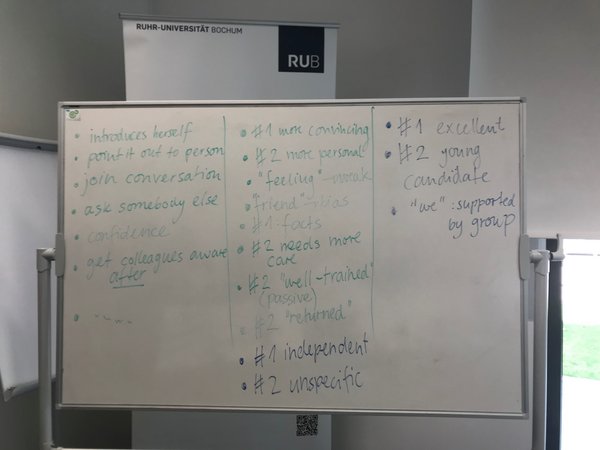 RUHR-UNIVERSITÄT BOCHUM
RUB
• introduces herself
• point it out to person
• join conversation
• ask somebody else
• confidence
• get colleagues aware
after
• #1 more convincing
• #2 more personal
• "feeling" → weak
• "friend" → bias
• #1: facts
• #2 needs more
care
• #2 "well-trained"
(passive)
• #2 "returned"
• #1 independent
• #2 unspecific
• #1 excellent
• #2 young
candidate
• "we": supported
by group